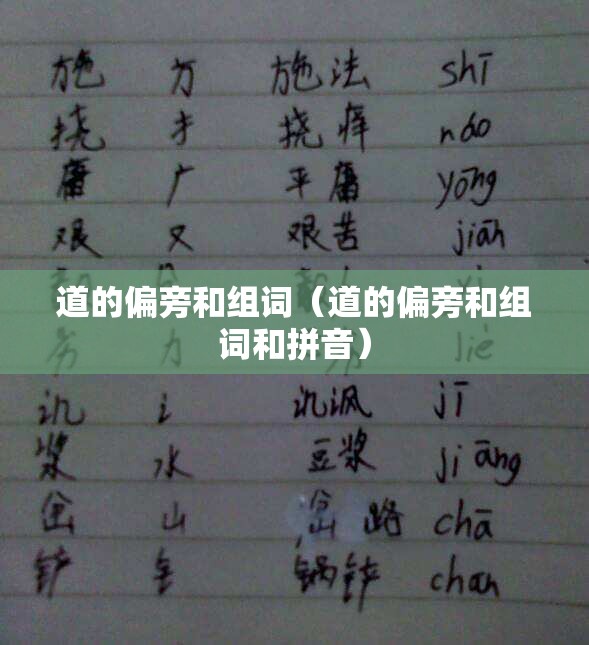 施 方 施法 shī
挠 扌 挠痒 náo
庸 广 平庸 yōng
艰 又 艰苦 jiān
道的偏旁和组词（道的偏旁和组
词和拼音）
力 liè
讥 讠 讥讽 jī
浆 水 豆浆 jiāng
山 路 chā
铲 钅 锅铲 chan